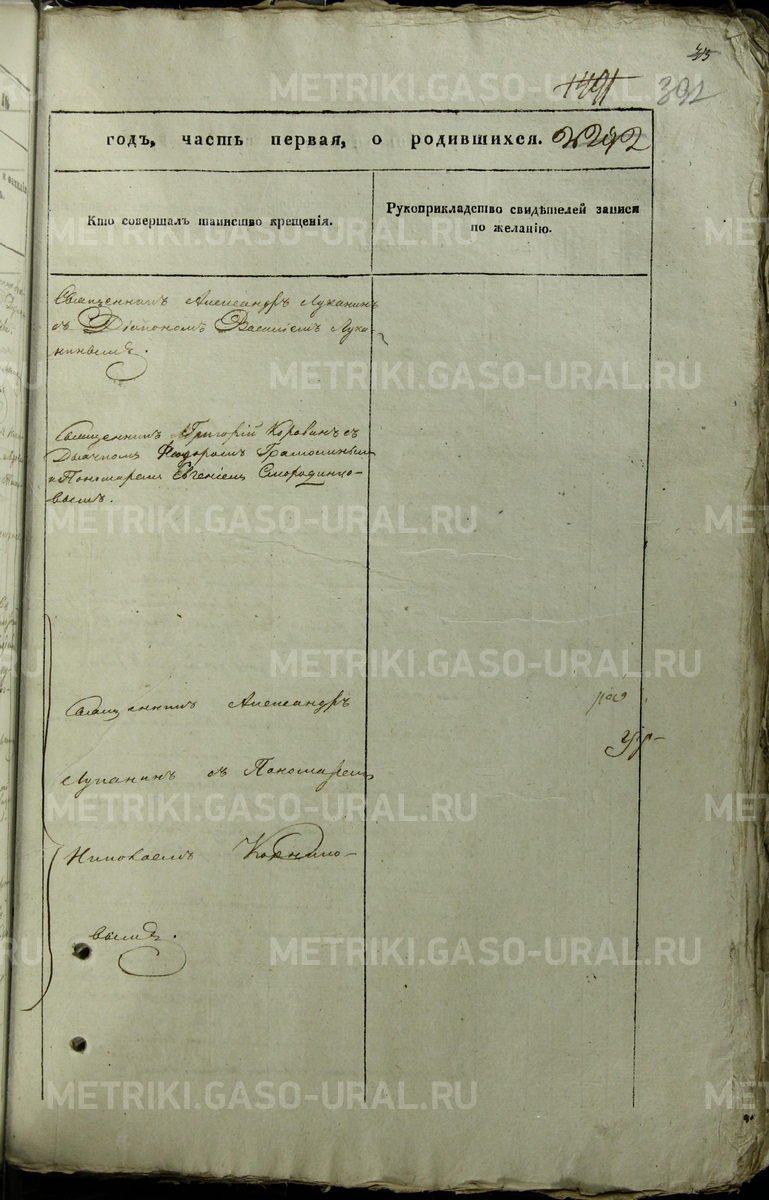 35
1491
392
годъ, часть первая, о родившихся. 2292
Кто совершалъ таинство крещенія.
Рукоприкладство свидѣтелей записи
по желанію.
Священникъ Александръ Луканинъ
съ Діакономъ Василіемъ Лука-
нинымъ.
Священникъ Григорій Коровинъ съ
Дьячкомъ Ѳеодоромъ Грамолинымъ
и Пономаремъ Евгеніемъ Смородинцо-
вымъ.
Священникъ Александръ
Луканинъ съ Пономаремъ
Николаемъ Корнило-
вымъ.
METRIKI.GASO-URAL.RU